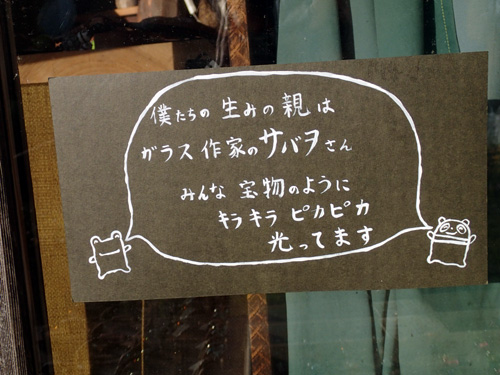 僕たちの生みの親は
ガラス作家のサバヲさん
みんな宝物のように
キラキラピカピカ
光ってます